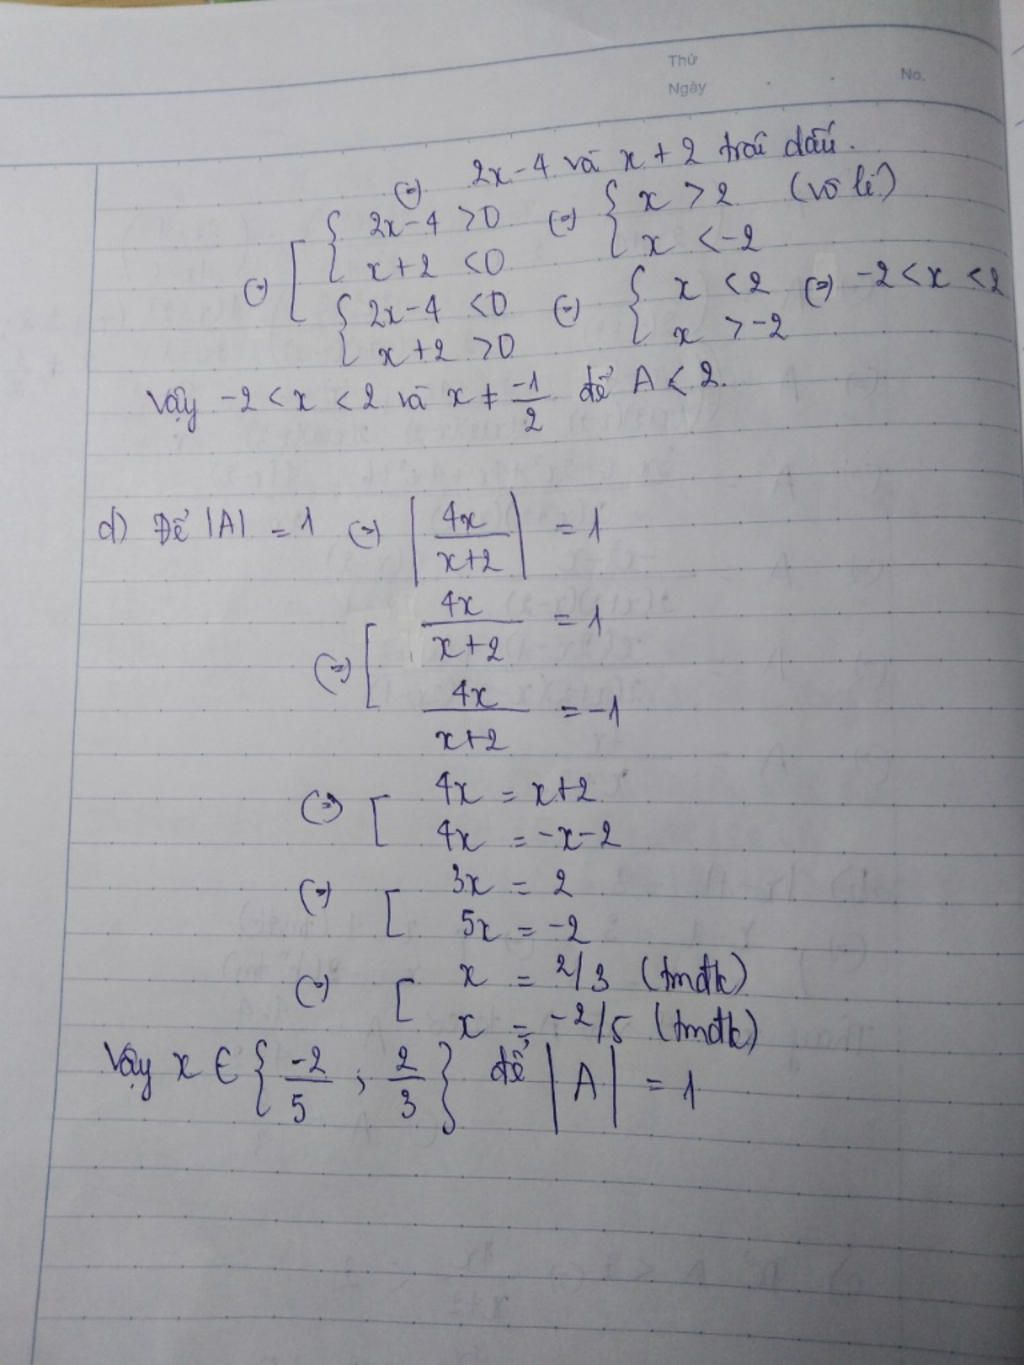 Thứ
Ngày . . No.
(=) 2x-4 và x+2 trái dấu.
(=) [ { 2x-4 >0 (=) { x >2 (vô lí)
x+2 <0 x <-2
{ 2x-4 <0 (=) { x <2 (=) -2<x<2
x+2 >0 x >-2
Vậy -2<x<2 và x ≠ -1/2 để A<2.
d) Để |A| = 1 (=) | 4x/x+2 | = 1
(=) [ 4x/x+2 = 1
4x/x+2 = -1
(=) [ 4x = x+2
4x = -x-2
(=) [ 3x = 2
5x = -2
(=) [ x = 2/3 (tmđk)
x = -2/5 (tmđk)
Vậy x ∈ { -2/5 ; 2/3 } để |A| = 1